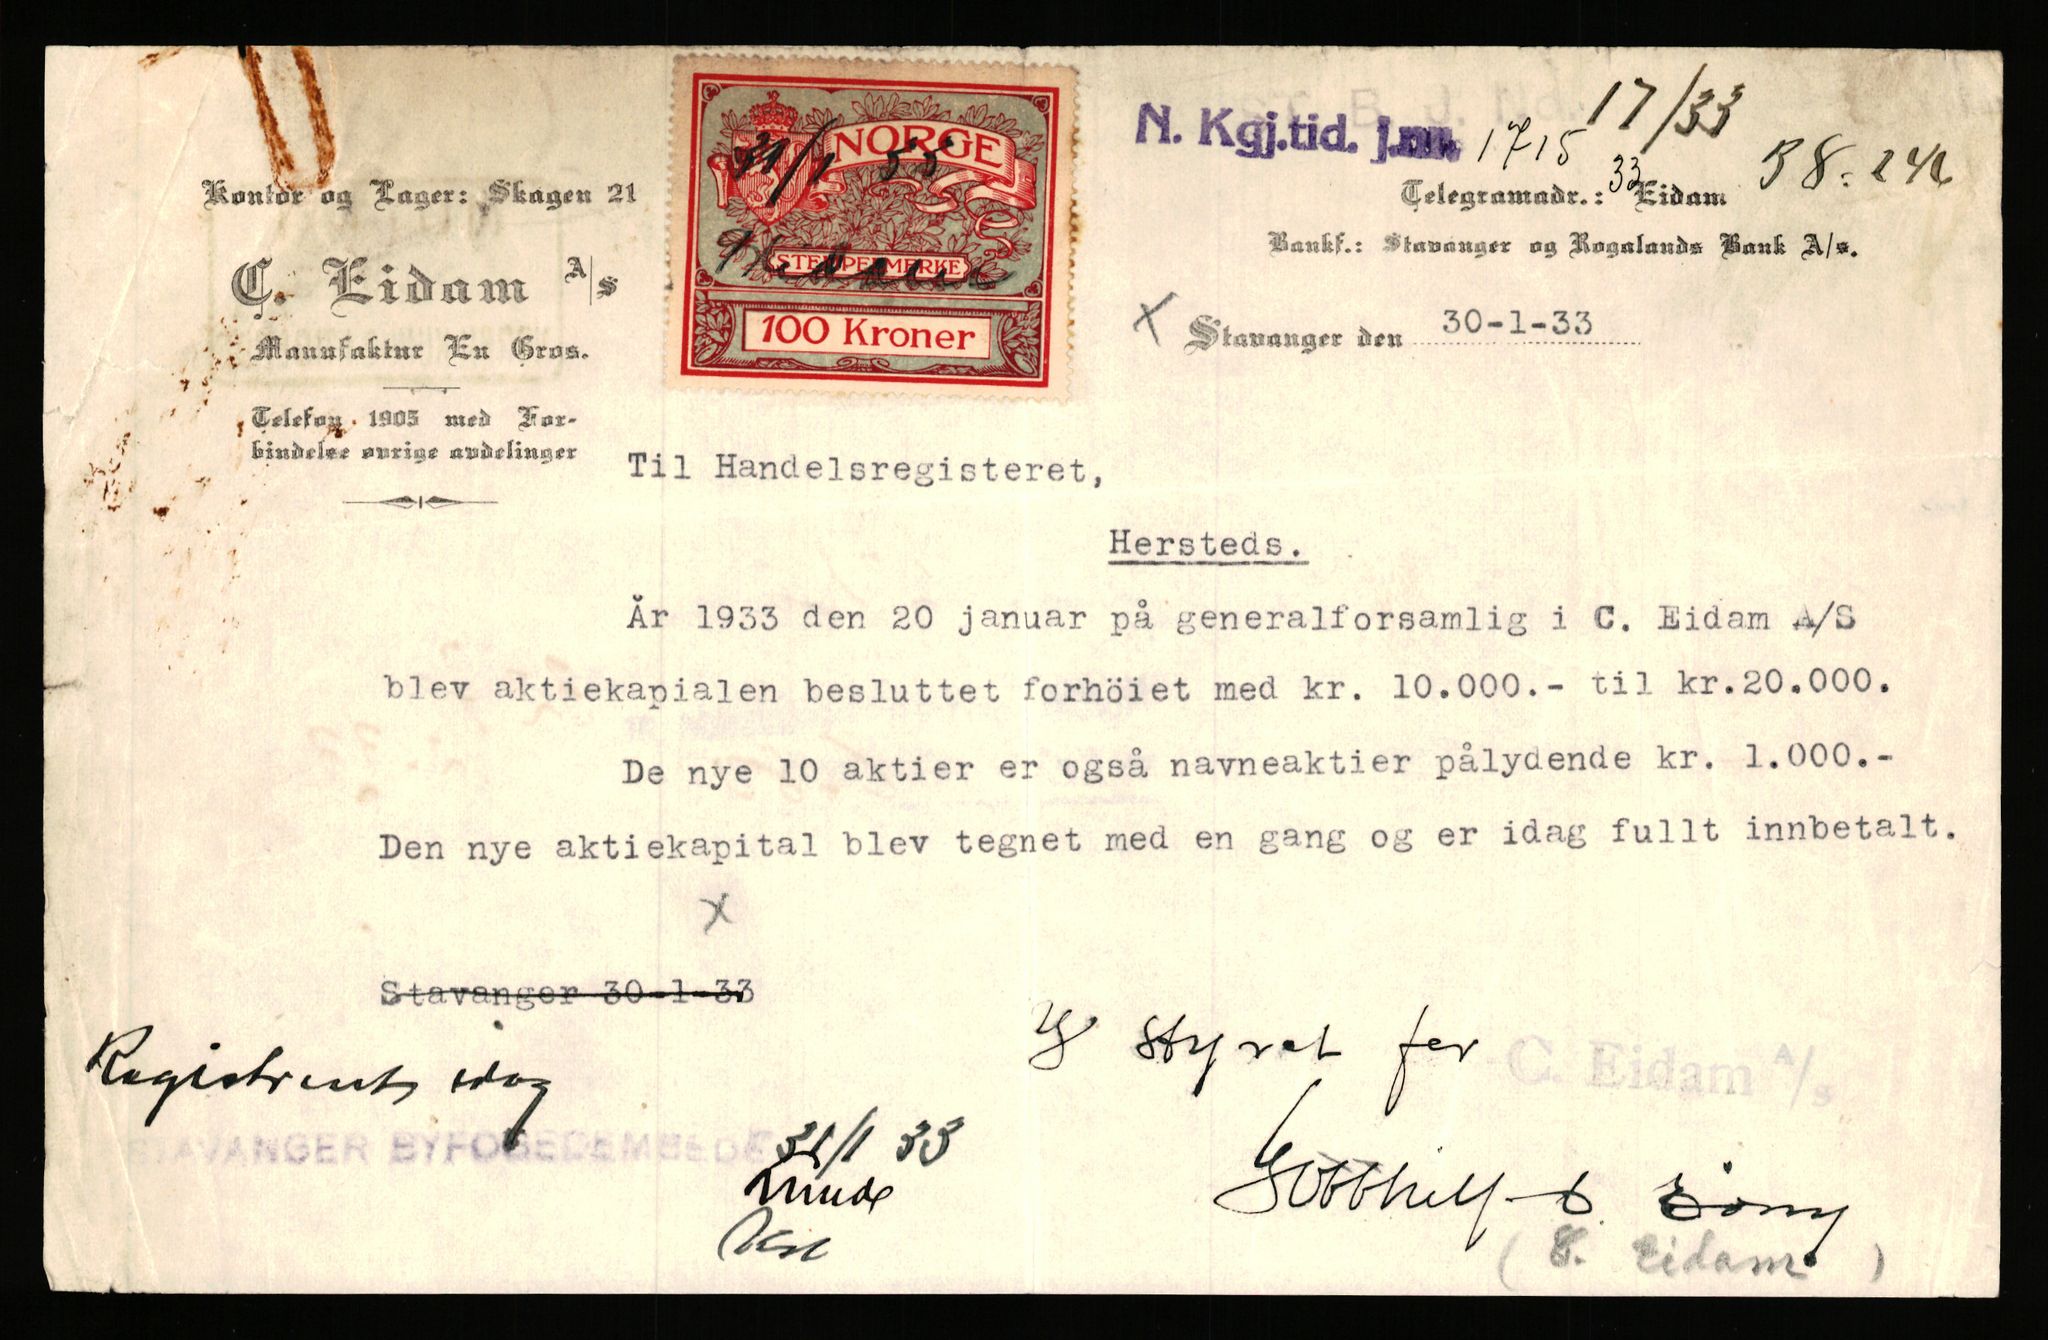 Kontor og Lager: Skagen 21
C. Eidam A/s
Manufaktur En Gros.
Telefon 1905 med For-
bindelse øvrige avdelinger
31/1 33
NORGE
STEMPELMERKE
100 Kroner
17/33
N. Kgj.tid. j.nr. 1715
33
Telegramadr.: Eidam
Bankf.: Stavanger og Rogalands Bank A/s.
X Stavanger den 30-1-33
Til Handelsregisteret,
Hersteds.
År 1933 den 20 januar på generalforsamlig i C. Eidam A/S
blev aktiekapialen besluttet forhöiet med kr. 10.000.- til kr.20.000.
De nye 10 aktier er også navneaktier pålydende kr. 1.000.-
Den nye aktiekapital blev tegnet med en gang og er idag fullt innbetalt.
X
Stavanger 30-1-33
I styret for
C. Eidam A/s
Registrert idag
STAVANGER BYFOGEDEMBEDE
31/1 33
(C. Eidam)